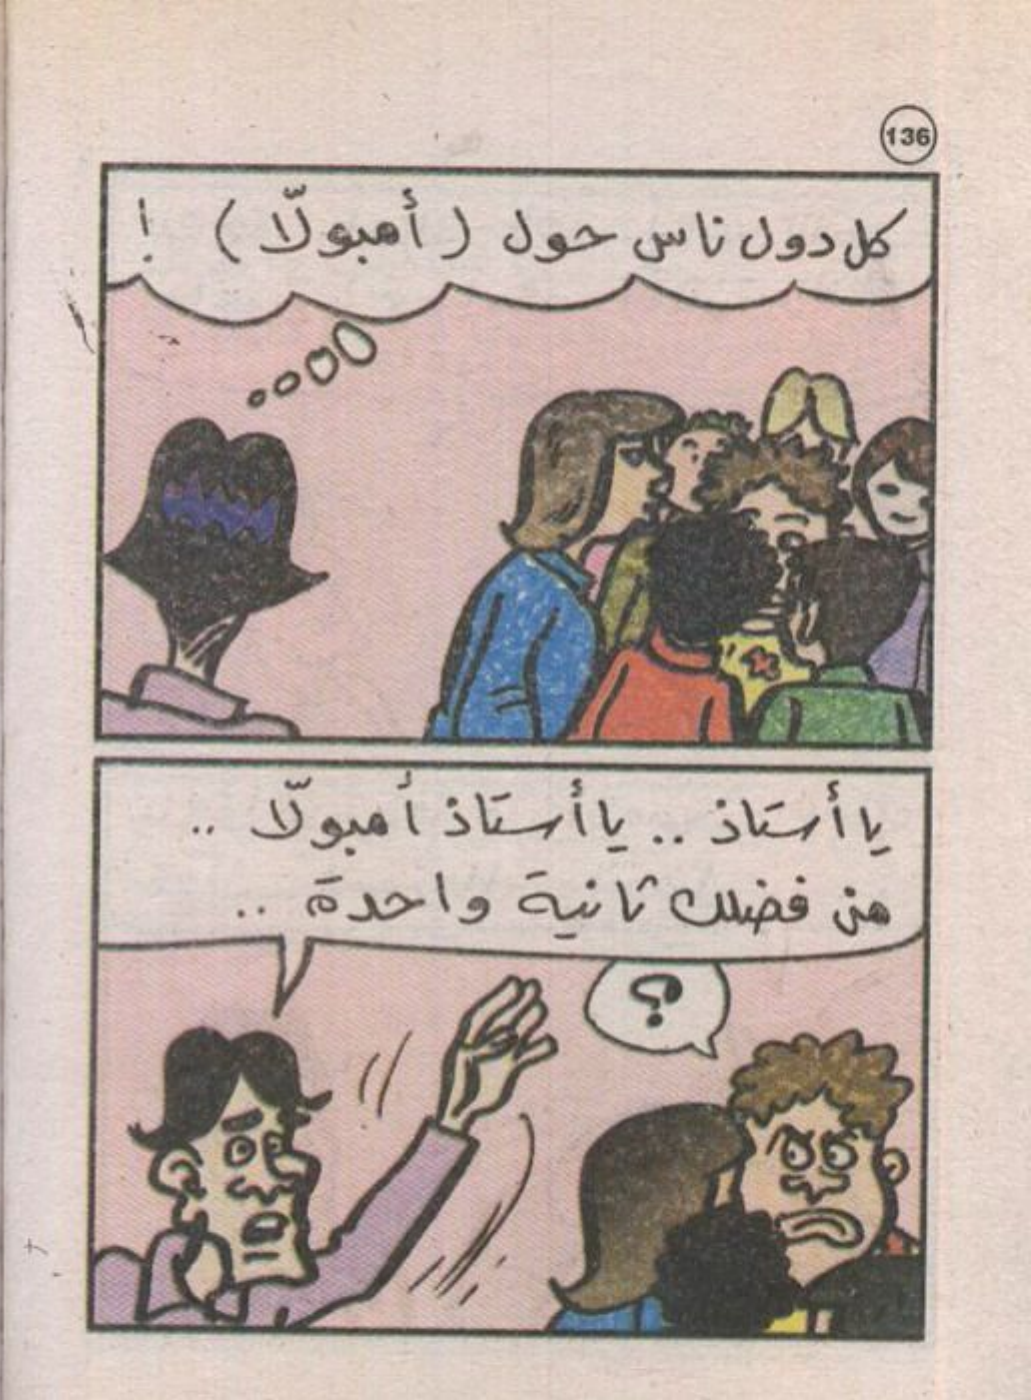 136
كل دول ناس حول (أمبولّا) !
يا أستاذ .. يا أستاذ أمبولّا ..
من فضلك ثانية واحدة ..
؟